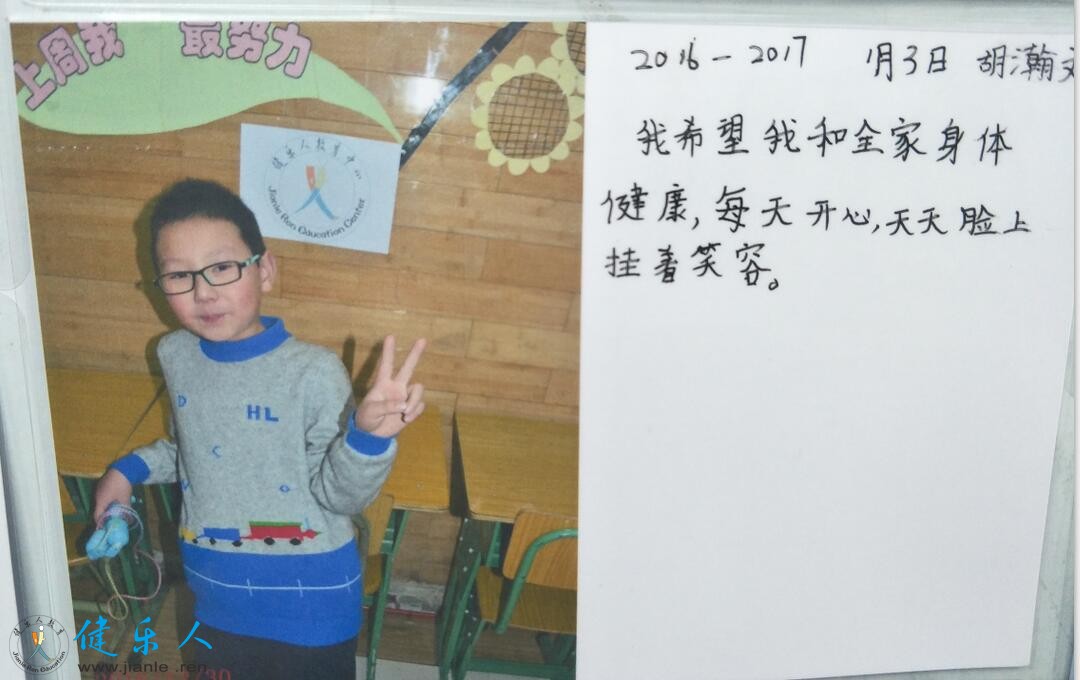 上周我 最努力
健乐人教育中心
Jianle Ren Education Center
HL
D
C
2016-2017 1月3日 胡瀚文
我希望我和全家身体
健康,每天开心,天天脸上
挂着笑容。
健乐人
www.jianle.ren